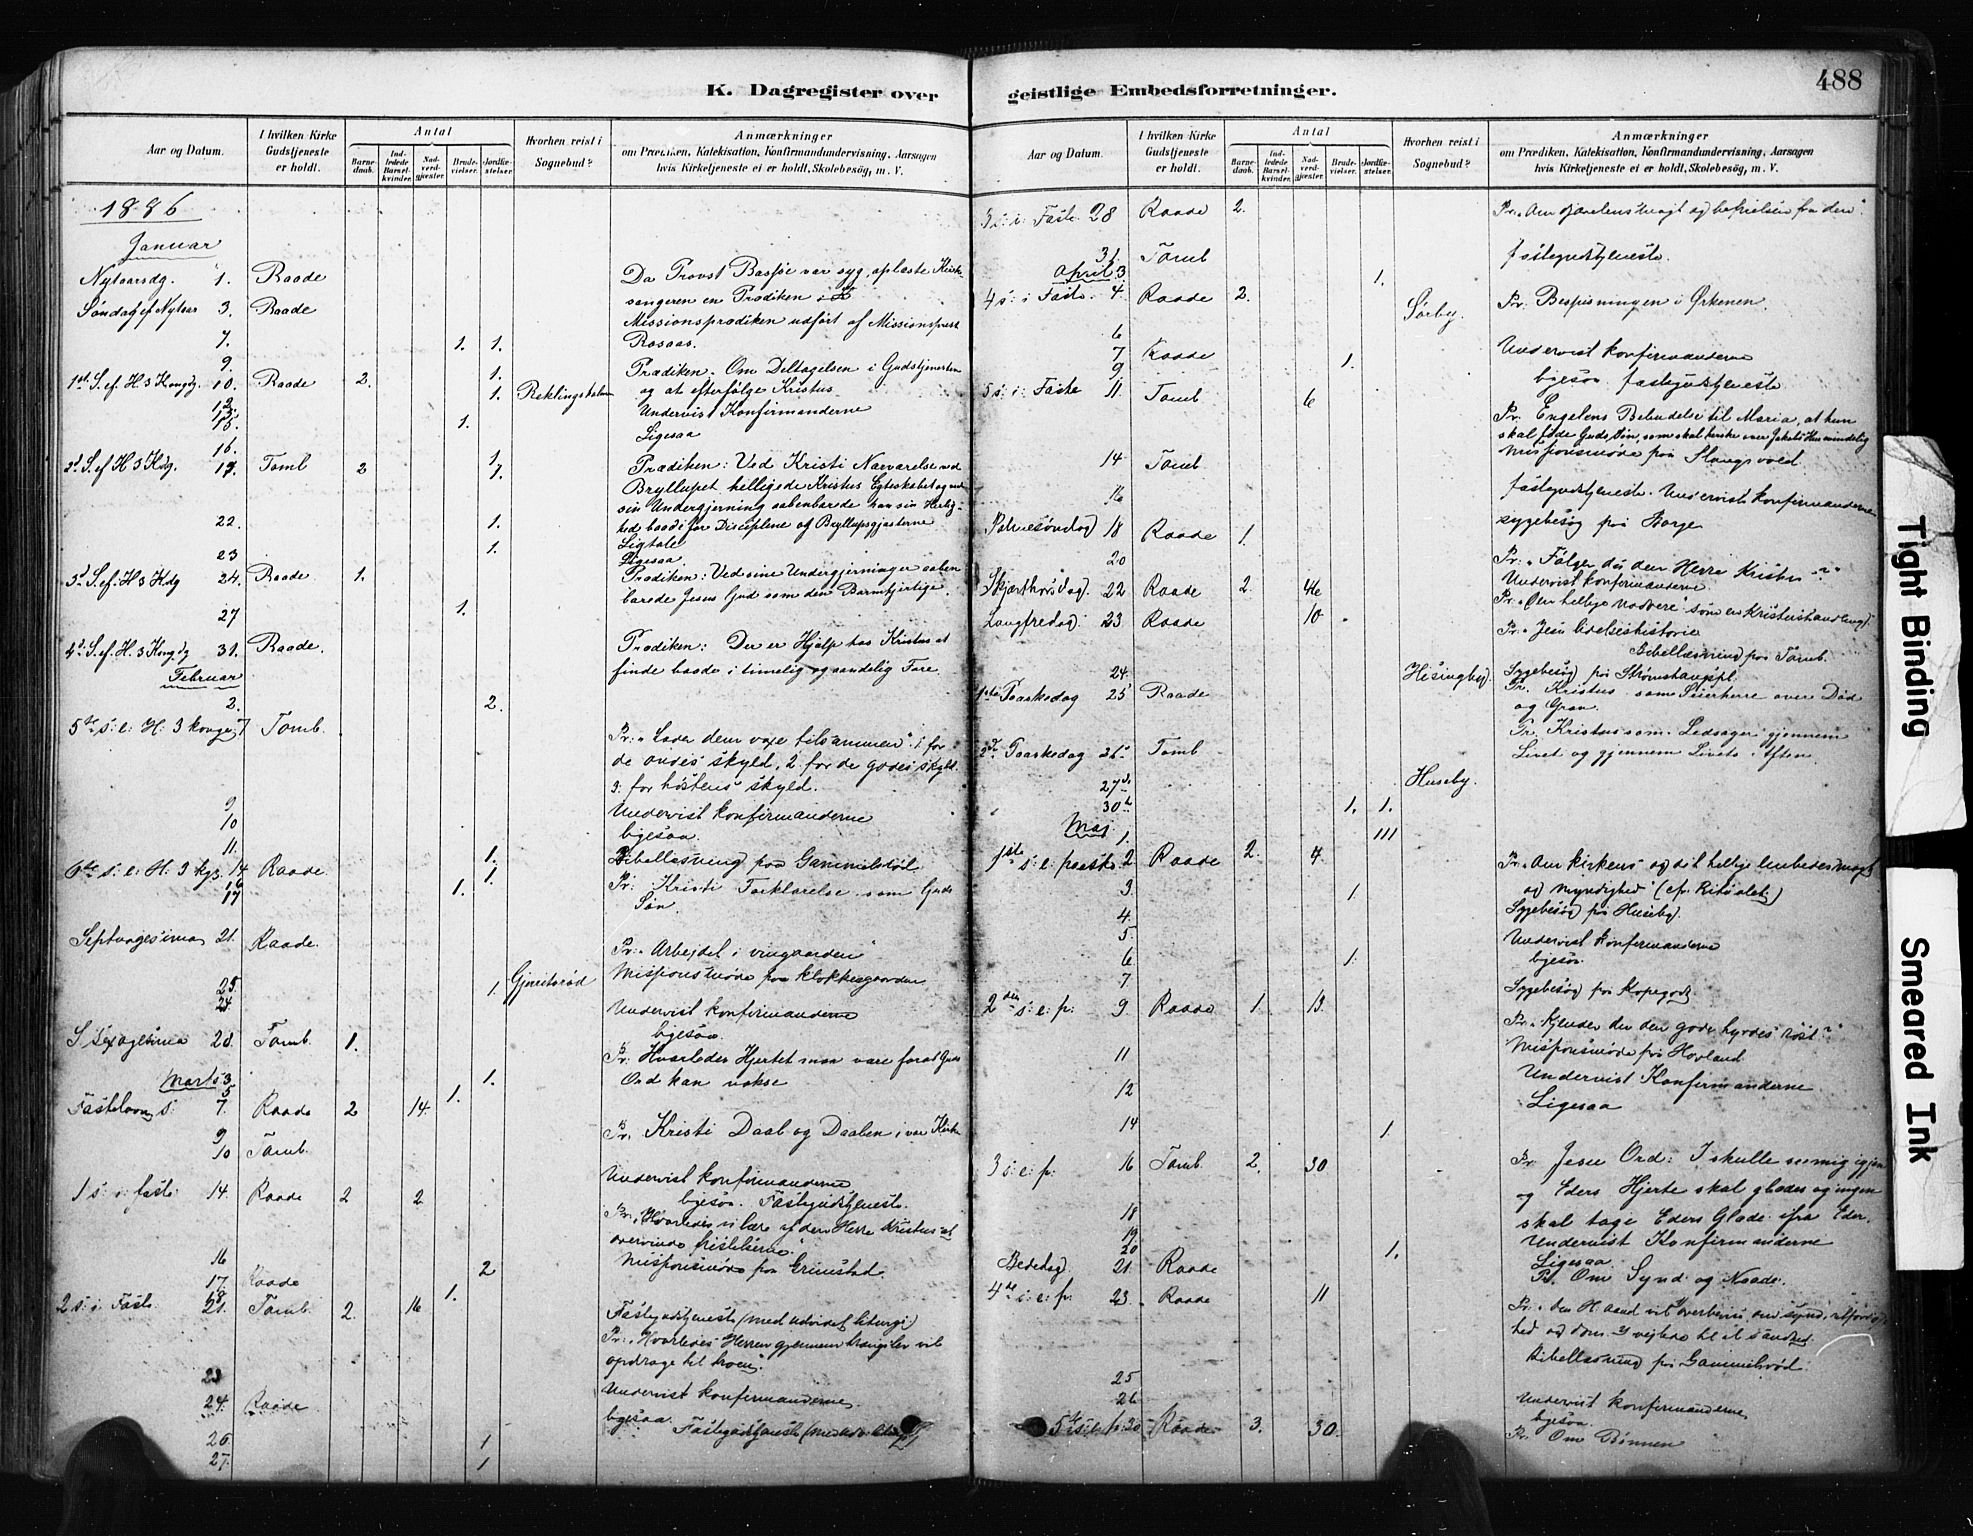 K. Dagregister over geistlige Embedsforretninger.
488
Aar og Datum.
I hvilken Kirke Gudstjeneste er holdt.
Antal
Barnedaab.
Indledede Barselkvinder.
Nadverdgjæster.
Brudevielser.
Jordfæstelser.
Hvorhen reist i Sognebud?
Anmærkninger
om Prædiken, Katekisation, Konfirmandundervisning, Aarsagen
hvis Kirketjeneste ei er holdt, Skolebesög, m. V.
1886
Januar
Nytaarsdg. 1. Raade Da Provst Bassøe var syg, oplæste Kirke
sangeren en Prædiken
Søndag ef Nytaar 3. Raade Missionsprædiken udført af Missionsprest
7. 1. 1. Rosaas.
9. 1. Prædiken. Om Deltagelsen i Gudstjenesten
1ste S. ef. H 3 Kongdg. 10. Raade 2. 1. og at efterfølge Kristus
12. Undervist Konfirmanderne
15. 1. Ligesaa
16. 1.
2d S. ef H 3 Kdg. 17. Tomb 2 Prædiken: Ved Kristi Nærværelse ved
Bryllupet helligede Kristus Egteskabet og ved
sin Undergjerning aabenbarede han sin Herlig-
hed baade for Disciplene og Bryllupsgjæsterne
22. 1. Ligtale
23 1. Ligesaa
3d S. ef. H 3 Kdg 24. Raade 1. Prædiken: Ved sine Undergjerninger aaben
barede Jesus Gud som den Barmhjertige.
27 1.
4d S. ef. H. 3 Kongdg 31. Raade. Prædiken: Der er Hjælp hos Kristus at
finde baade i timelig og aandelig Fare.
Februar
2. 2.
5te s: e: H: 3 konge 7 Tomb. Pr: "Lader dem voxe tilsammen" 1. for
de ondes skyld, 2. for de godes skyld
3: for høstens skyld.
9 Undervist konfirmanderne
10 ligesaa
11. 1. Bibellæsning paa Gammelsrød
6te s: e: H. 3 kgs. 14 Raade 1. Pr: Kristi Forklarelse som Guds
16 Søn.
17 1.
Septuagesima 21. Raade. Pr: "Arbejdet i vingaarden"
Missionsmøde paa klokkergaarden
Undervist konfirmanderne
ligesaa.
Sexagesima 28. Tomb. 1. Pr: Hvorledes Hjertet maa være forat Guds
Ord kan vokse
Marts 3 1.
5 1.
Fastelavns s: 7. Raade 2 14 Pr. Kristi Daab og Daaben i vor Kirke
9
10 Tomb. Undervist konfirmanderne
ligesaa. Fastegudstjeneste.
1 s: i: faste: 14. Raade 2 2 Pr: "Hvorledes vi lære af den Herre Kristus at
overvinde fristelserne."
16 2 Missionsmøde paa Grimstad.
17. Raade
18 1.
2 s: i Faste. 21. Tomb. 2. 16 Fastegudstjeneste (med udvidet liturgi)
Pr: "Hvorledes Herren gjennem trængsler vil
opdrage til troen".
23 Undervist konfirmanderne
24. Raade ligesaa. Fastegudstjeneste
26. 1
27. 1
3 s: i: Faste. 28 Raade 2. Pr. "Om djævelens magt og befrielsen fra den".
31. Tomb fastegudstjeneste.
April 3. 1.
4 s: i Faste. 4. Raade 2. Sørby. Pr. Bespisningen i Ørkenen.
6 Undervist konfirmanderne
7 Raade ligesaa fastegudstjeneste
9 1.
5 s: i: Faste 11. Tomb 6 Pr. Engelens Bebudelse til Maria, at hun
skal føde Guds Søn, som skal herske over Jakobs Hus evindelig
Missionsmøde paa Slangsvold.
14 Tomb. fastegudstjeneste. Undervist konfirmanderne
16 sygebesøg paa Aarje
Palmesøndag 18 Raade 1. Pr: "Følger du den Herre Kristus?"
20 Undervist konfirmanderne.
Skjærthorsdag. 22 Raade 2. 46 Pr. "Den hellige nadvere" som en Kristushandling.
Langfredag. 23 Raade 10 Pr. "Jesu lidelseshistorie
Bibellæsning paa Tomb.
24. Sygebesøg
1ste Paaskedag 25 Raade Pr. Kristus som Seierherre over Død
og Grav.
2den Paaskedag 26 Tomb Pr. Kristus som Ledsager gjennem
Livet og gjennem Livets Aften.
27de Huseby.
30te 1. 1.
Maj
1. 111
1ste s: e: paaske 2 Raade 2. 4. Pr. "Om kirkens og det hellige Embedes magt
og myndighed" (cfr. Ritualet)
3. 1 Sygebesøg paa Huseby.
4. Undervist konfirmanderne
5. ligesaa.
6 1.
7 Sygebesøg paa
2den s: e: p: 9 Raade 1. 13. Pr. "Kjender du den gode hyrdes røst?"
Missionsmøde paa Hovland
11 Undervist Konfirmanderne
12 Ligesaa
14 1.
3 s: e: p: 16 Tomb. 2. 30 Pr Jesu Ord: I skulle se mig igjen
og Eders Hjerte skal glædes og ingen
skal tage Eders Glæde ifra Eder.
18 Undervist Konfirmanderne
19. Ligesaa
20 1.
Bededag. 21. Raade Pr. Om Synd og Naade.
4de s: e: p: 23. Raade 11 Pr: "Den H. aand vil overbevise om synd, retfærdig-
hed og dom.
Bibellæsning paa Gammelsrød.
25 Undervist konfirmanderne
26 ligesaa.
5te s: e: p: 30 Raade 3. 30. Pr. Om Bønnen
Tight Binding
Smeared Ink